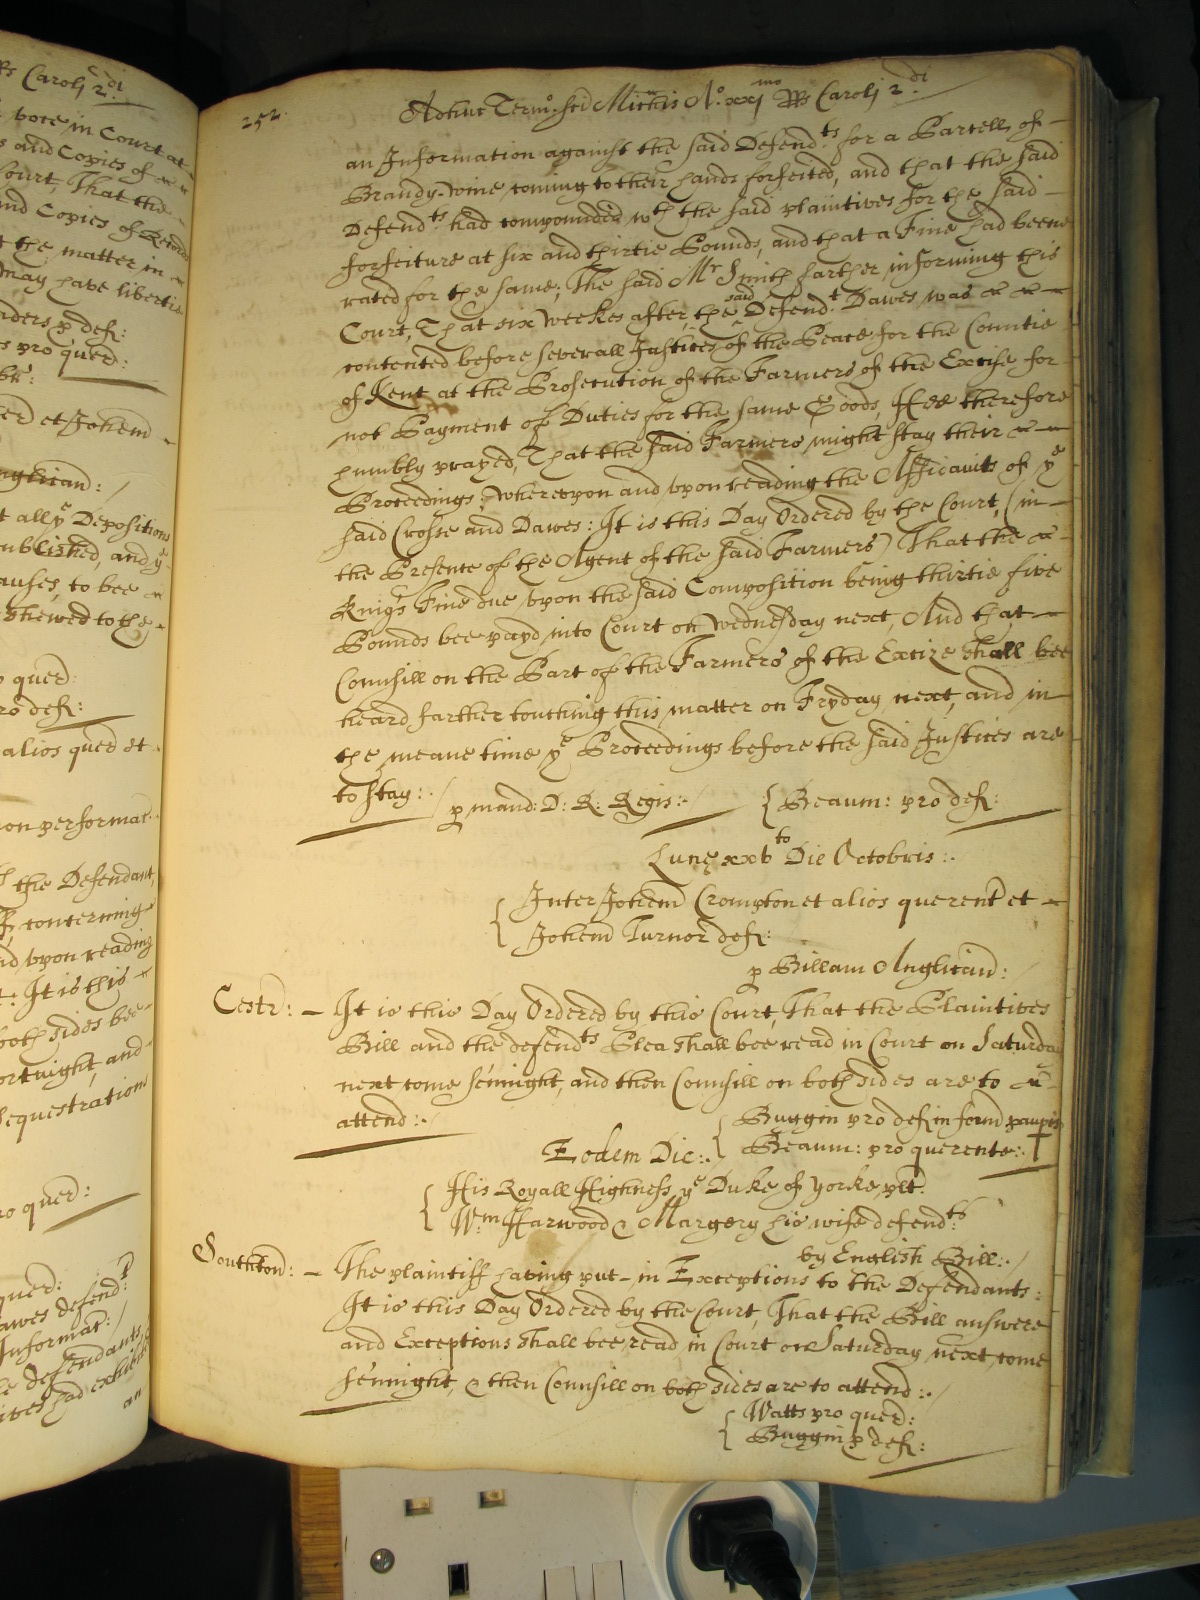 Rs Caroli 2.di
voce in Court at
s and Copies of
Court, That the
and Copies of Record
t the matter in
May have libertie
p def:
s pro quer:
et Johem
Anglican:
t all ye Deposition
ublished, and ye
auses, to bee
shewed to the
quer:
pro def:
alios quer et
on performat
the Defendant,
concerning
nd upon reading
: It is this
both sides bee
ortnight, and
Sequestration
ro quer:
quer:
awes defend:t
Informat:
e defendants
ives had exhibit
an
252
Adhuc Termo: sci Michis Ao. xxjmo RRs Caroli 2.di
an Information against the said Defend:ts for a Parcell of
Brandy-wine, coming to their hands forfeited, and that the said
Defend:ts had compounded wth the said plaintives for the said
forfeiture at six and thirtie Pounds, and that a Fine had beene
rated for the same; The said Mr Smith farther informing this
Court, That six Weekes after, the said Defend:t Dawes was
contented before severall Justices of the Peace for the Countie
of Kent at the Prosecution of the Farmers of the Excise for
not Payment of Duties for the same Goods, Hee therefore
humbly prayed, That the said Farmers might stay their
Proceedings; whereupon and upon reading the Affidavits of ye
said Crosse and Dawes: It is this Day Ordered by the Court, (in
the Presence of the Agent of the said Farmers) That the
Kings Fine due upon the said Composition being thirtie five
Pounds bee payd into Court on Wednesday next, And that
Counsill on the Part of the Farmers of the Excize shall bee
heard farther touching this matter on Fryday next, and in
the meane time ye Proceedings before the said Justices are
to stay:
p mand: D: R: Regis:
Beaum: pro def:
Lunę xxvto Die Octobris:
Inter Johem Crompton et alios querent et
Johem Turnor def:
p Billam Anglican:
Cestr: It is this Day Ordered by this Court, That the Plaintives
Bill and the defendts Plea shall bee read in Court on Saturday
next come sennight, and then Counsill on both sides are to
attend:
Buggin pro def in form paupis
Beaum: pro querente:
Eodem Die:
His Royall Highness ye Duke of Yorke, plt
Wm Harwood & Margery his wife defend:ts
by English Bill:
Southton: The plaintiff having put in Exceptions to the Defendants:
It is this Day Ordered by the Court, That the Bill answere
and Exceptions shall bee read in Court on Saturday next come
sennight, & then Counsill on both sides are to attend:
Watts pro quer:
Buggin p def: